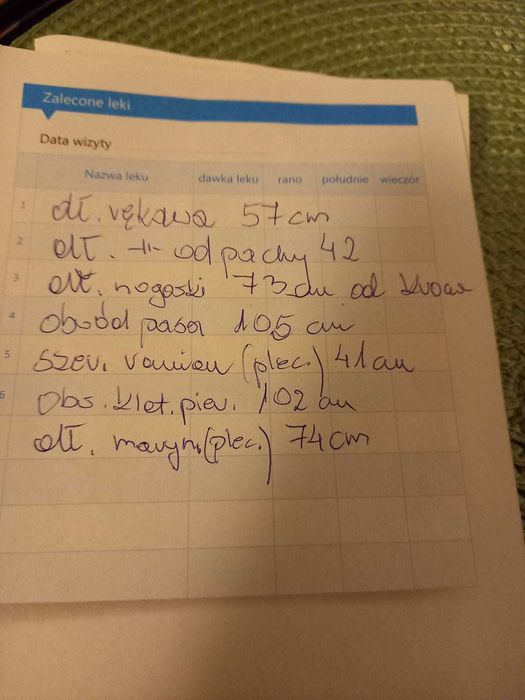 Zalecone leki
Data wizyty
Nazwa leku dawka leku rano południe wieczór
1 dł. rękawa 57 cm
2 dł. -||- od pachy 42
3 dł. nogawki 73 cm od
4 obwód pasa 105 cm
5 szer. ramion (plec.) 41 cm
6 Obs. klat. pier. 102 cm
dł. (plec.) 74 cm